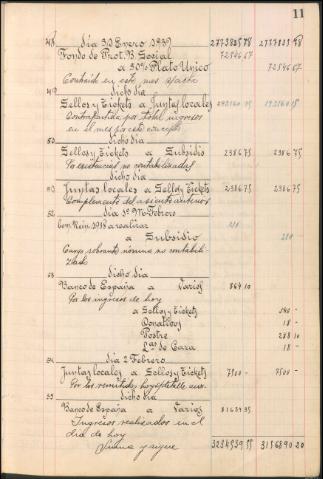 11
48 día 30 Enero 1939 2773825 78 2777823 78
Fondo de Prot. B. Social 72546 67
a 50% Plato Unico 72546 67
en este mes
49 dicho día
Sellos y Tickets a Juntas locales
Contrapartida por total ingresos
en el mes por este concepto
50 dicho día
Sellos y Tickets a Subsidio 2386 75 2386 75
Por existencias no contabilizadas
dicho día
Juntas locales a Sellos y Tickets 2386 75 2386 75
Complemento del asiento anterior
52 día 1º Febrero
a realizar
a Subsidio
sobrante nómina no contabili-
zada
53 dicho día
Banco de España a Varios 864 10
Por los ingresos de hoy
a Sellos y Tickets 540 -
Donativos 18 -
Postre 288 10
18 -
54 día 2 Febrero
Juntas locales a Sellos y Tickets 7500 - 7500 -
Por los remitidos hoy
55 dicho día
Banco de España a Varios
Ingresos realizados en el
día de hoy
Suma y sigue 3156890 20